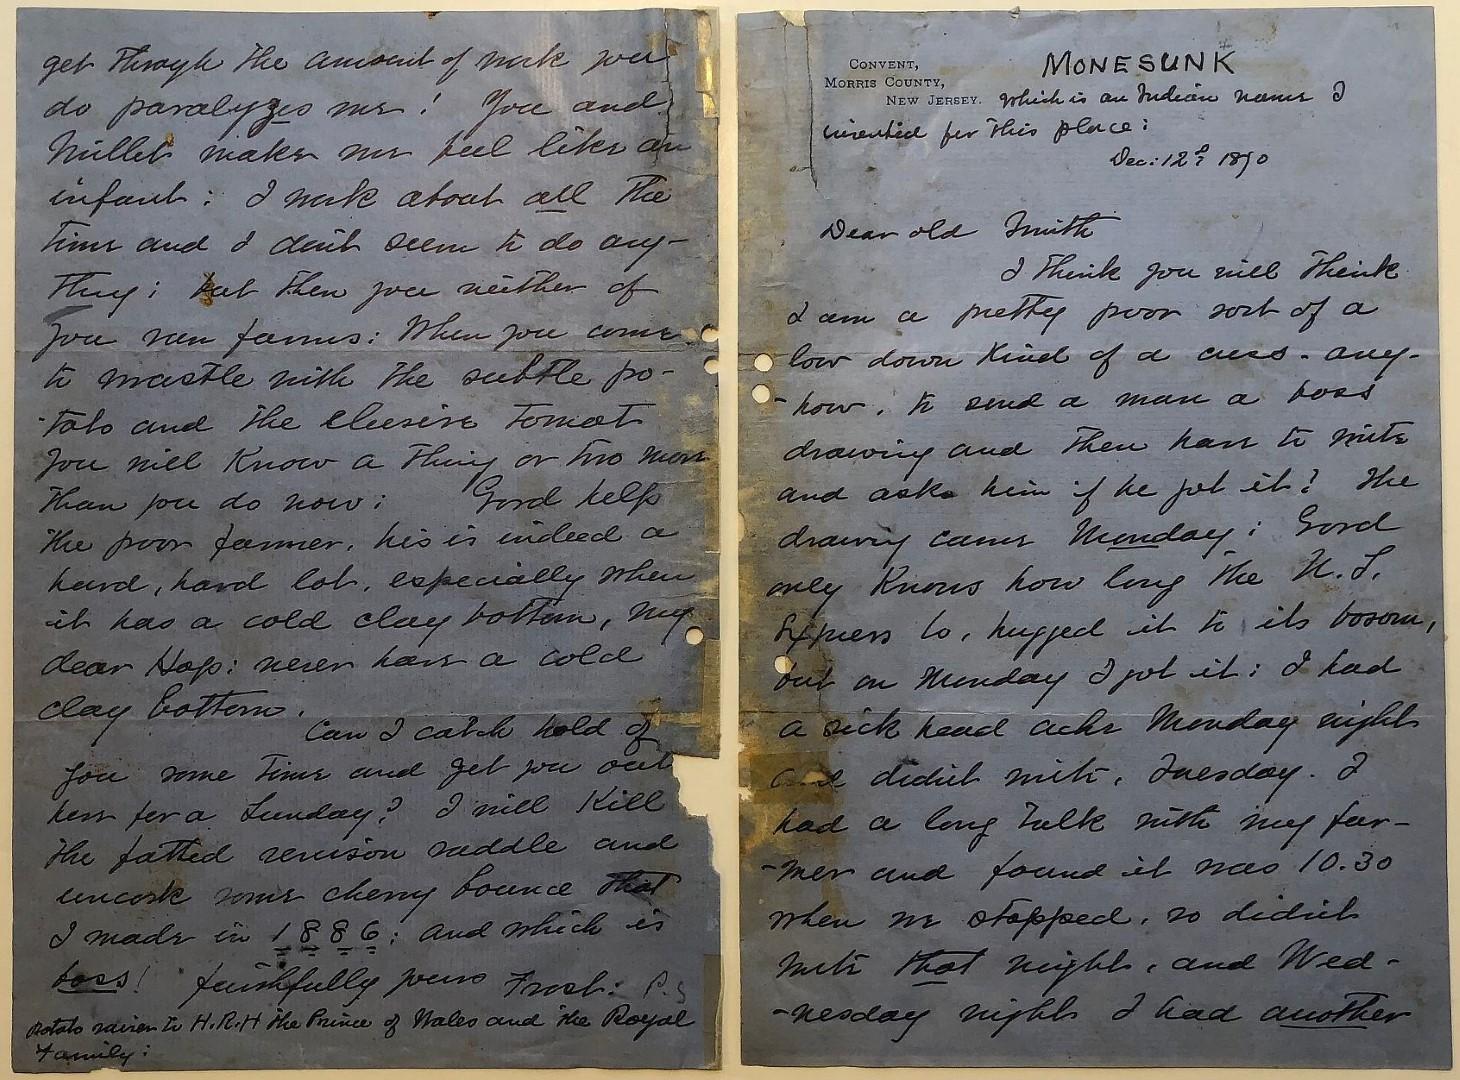 CONVENT,
MORRIS COUNTY,
NEW JERSEY.
MONESUNK
which is an Indian name I
invented for this place:
Dec: 12th 1890
Dear old Smith
I think you will think
I am a pretty poor sort of a
low down kind of a cuss - any-
-how, to send a man a boss
drawing and then have to write
and ask him if he got it? The
drawing came Monday; Gord
only knows how long the U.S.
Express Co, hugged it to its bosom,
but on Monday I got it: I had
a sick head ache Monday night
and didn't write, Tuesday. I
had a long talk with my far-
-mer and found it was 10.30
when we stopped, so didn't
write that night, and Wed-
-nesday night I had another
get through the amount of work you
do paralyzes me! You and
Millet make me feel like an
infant: I work about all the
time and I don't seem to do any-
thing; but then you neither of
you run farms: When you come
to wrastle with the subtle po-
-tato and the elusive tomat
you will know a thing or two more
than you do now: Gord help
the poor farmer, his is indeed a
hard, hard lot, especially when
it has a cold clay bottom, my
dear Hop: never have a cold
clay bottom.
Can I catch hold of
you some time and get you out
here for a Sunday? I will kill
the fatted venison saddle and
uncork some cherry bounce that
I made in 1886; and which is
boss! faithfully yours Frost: P.S
Potato raiser to H.R.H the Prince of Wales and the Royal
Family: